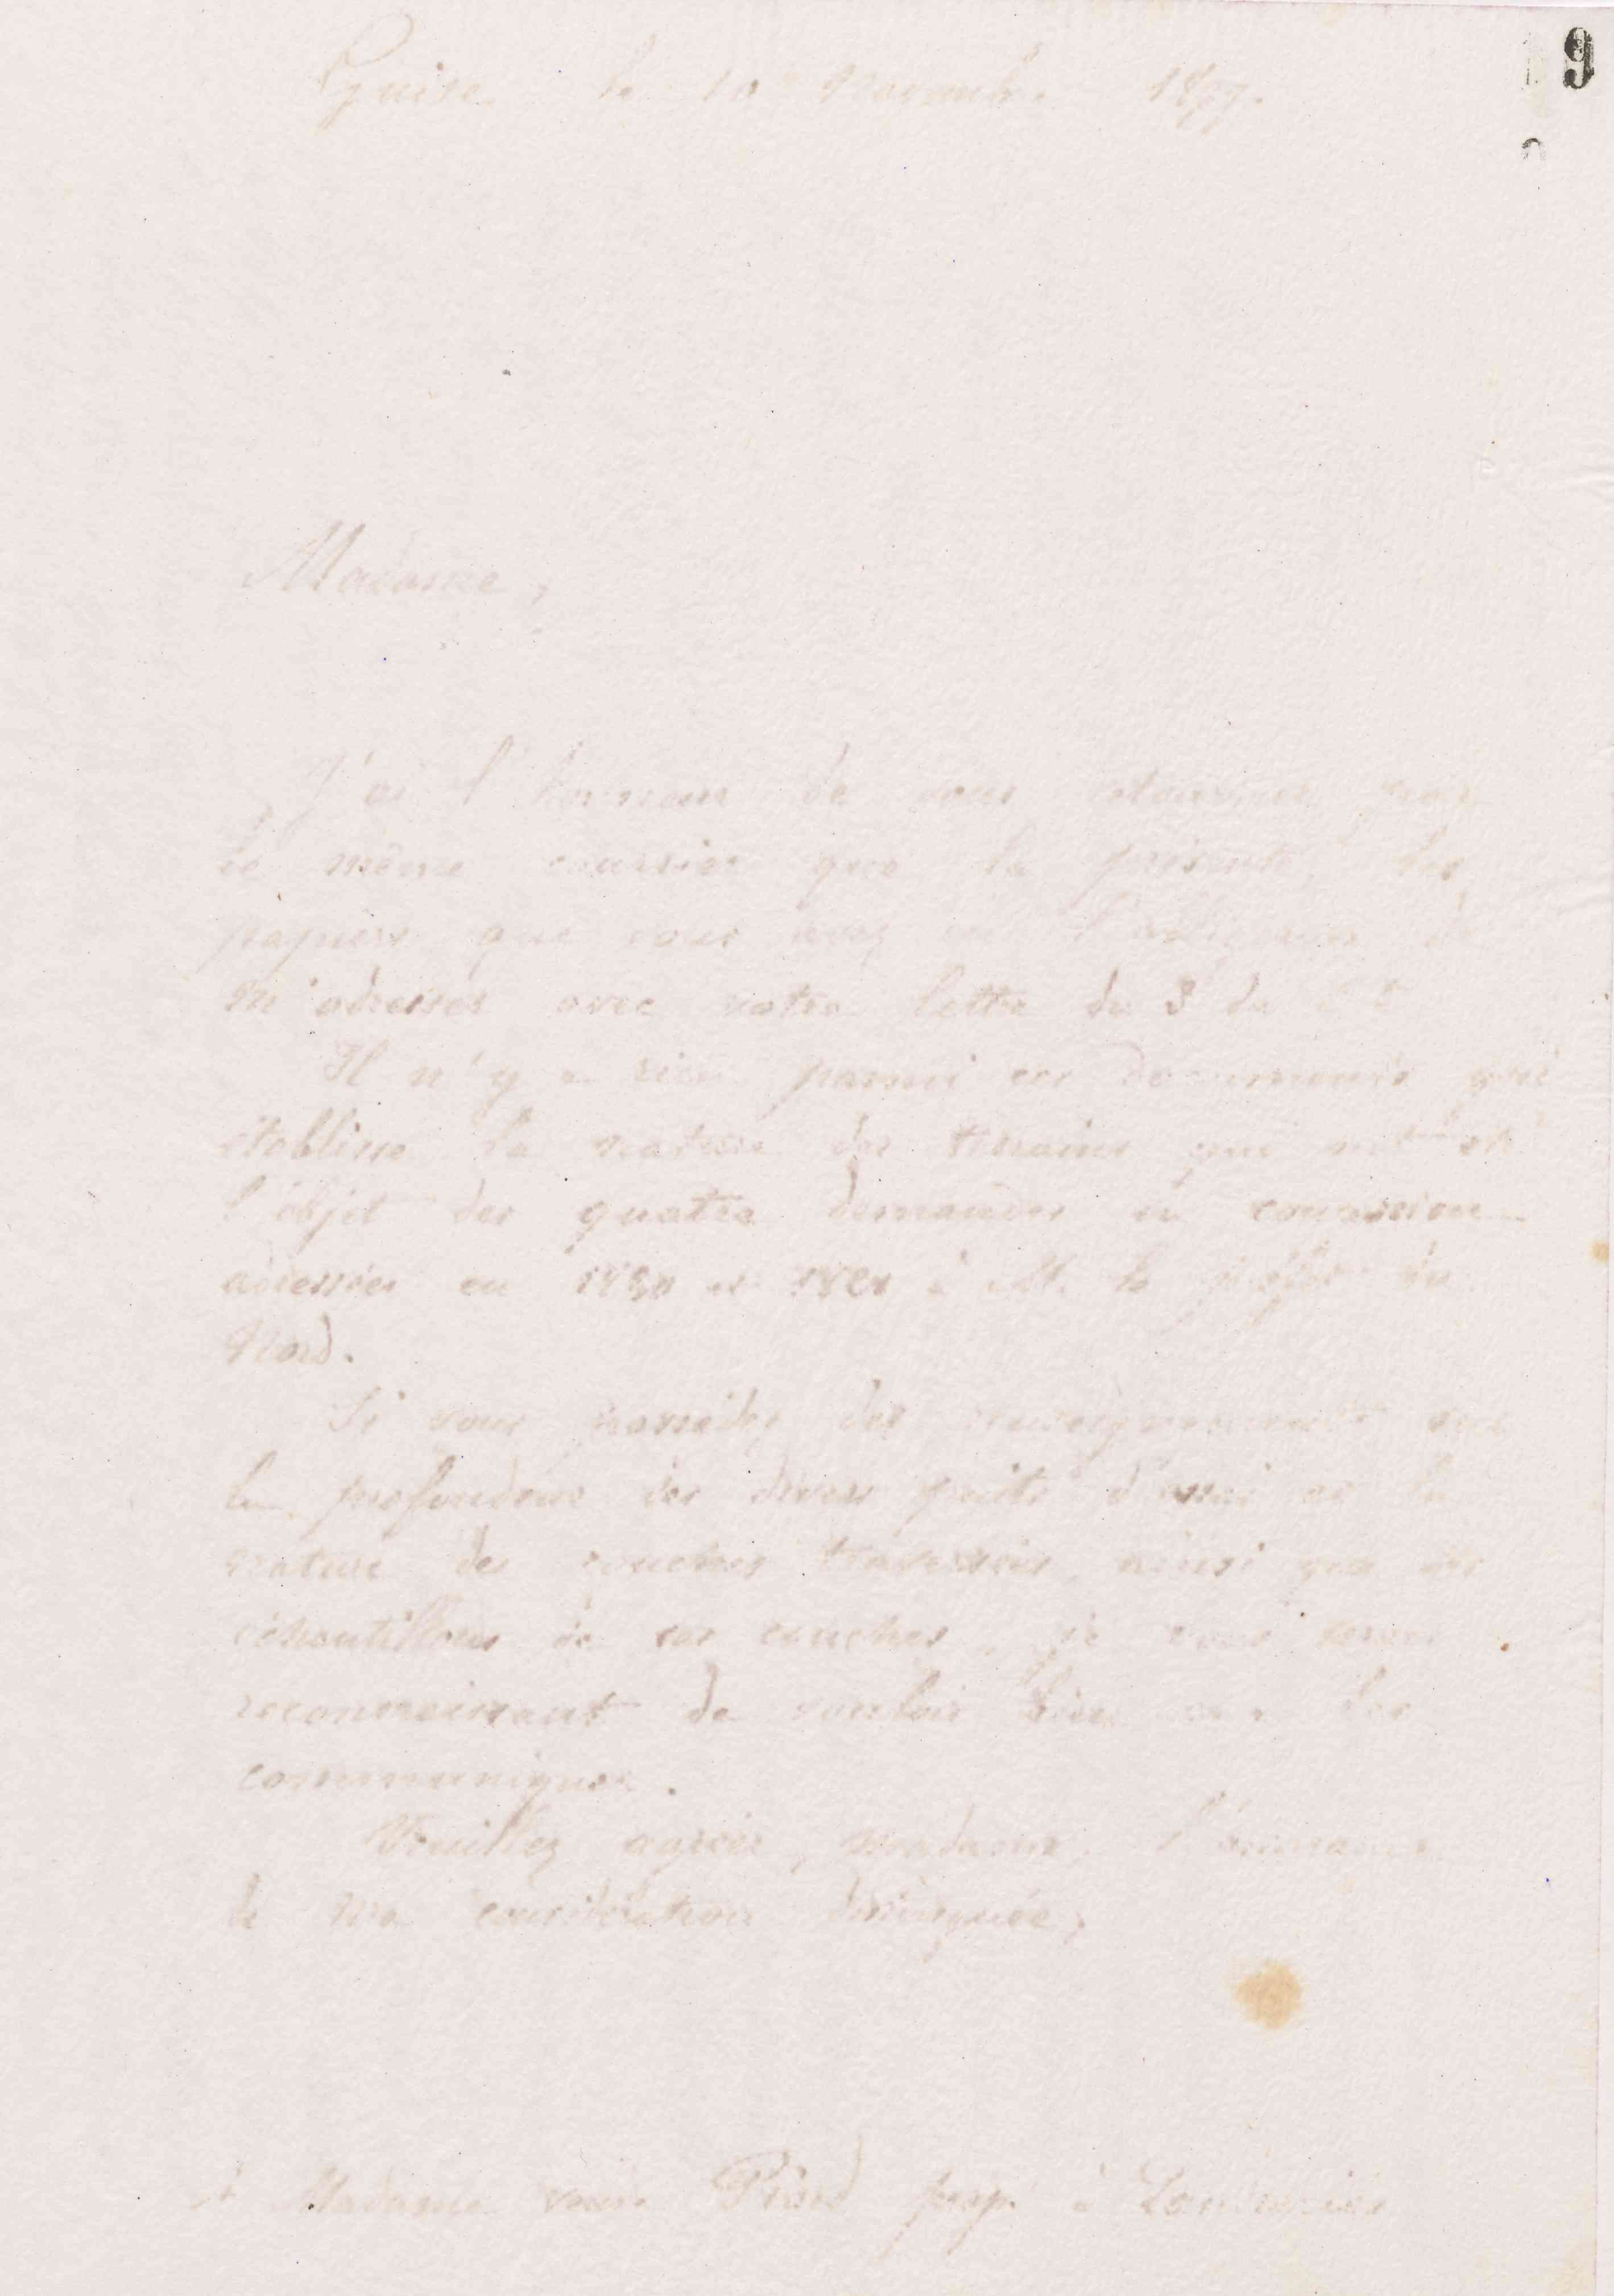 9
Guise le 10 Novembre 1877.
Madame,
J'ai l'honneur de vous retourner par
le même courrier que la présente, les
papiers que vous avez eu l'obligeance de
m'adresser avec votre lettre du 3 de
Il n'y a rien parmi ces documents qui
établisse la nature des terrains qui ont été
l'objet des quatre demandes en concession
adressées en à M. le préfet du
Nord.
Si vous possédez des renseignements sur
la profondeur des divers puits d'essai et la
nature des couches traversées, ainsi que des
échantillons de ces couches, je vous serais
reconnaissant de vouloir bien me les
communiquer.
Veuillez agréer, madame, l'assurance
de ma considération distinguée,
A Madame veuve prop. à